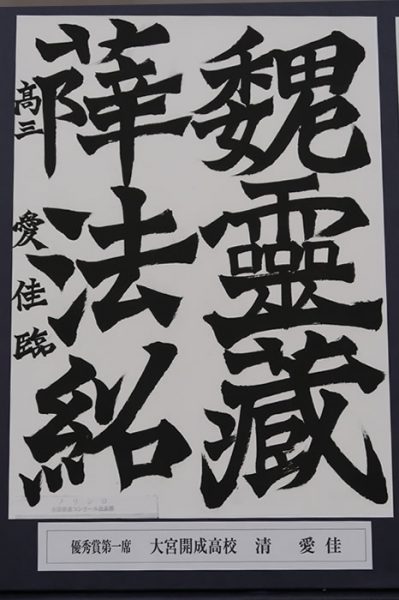 魏靈藏
薛法紹
髙三 愛佳臨
ノリシロ
優秀賞第一席 大宮開成高校 清 愛佳